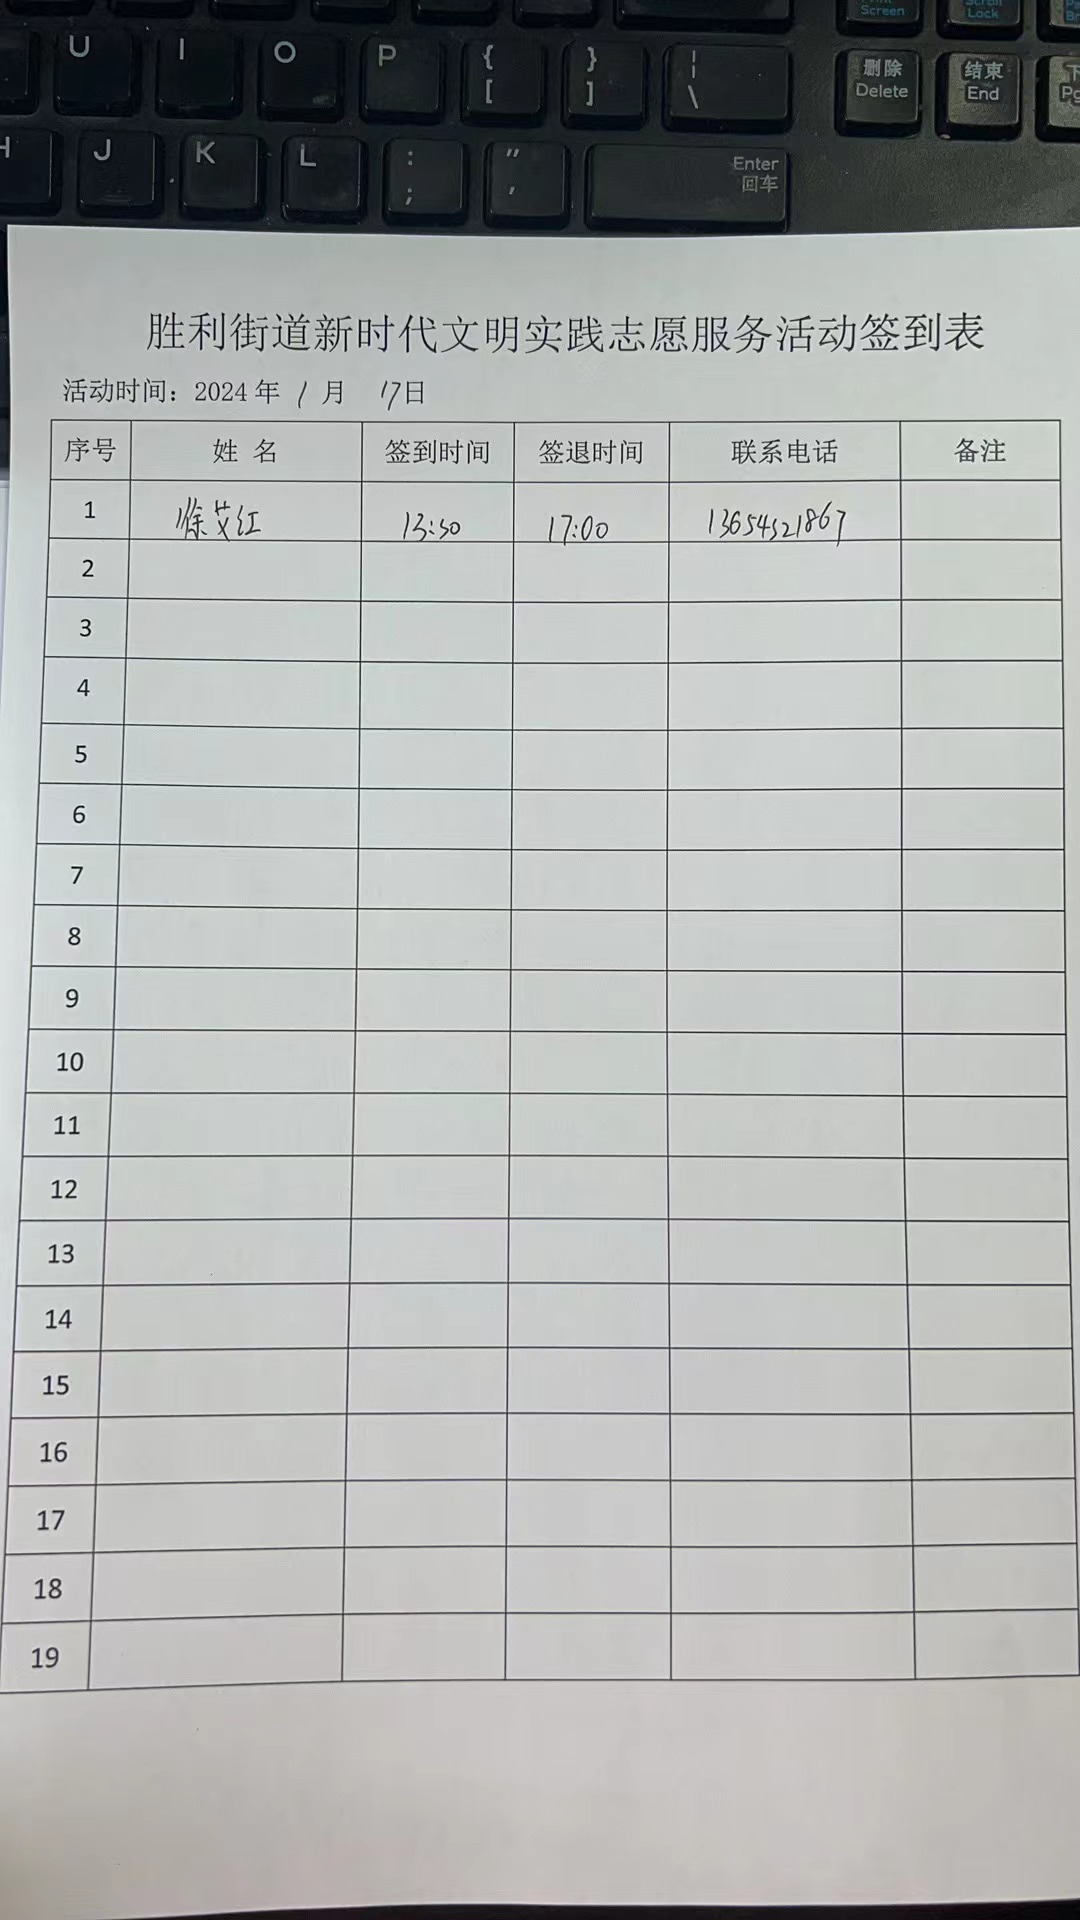 Screen
Scroll
Lock
U I O P { [ } ] | \
删除
Delete
结束
End
J K L : ; " '
Enter
回车
胜利街道新时代文明实践志愿服务活动签到表
活动时间：2024年 1月 17日
序号 姓 名 签到时间 签退时间 联系电话 备注
1 徐艾红 13:30 17:00 13654521867
2
3
4
5
6
7
8
9
10
11
12
13
14
15
16
17
18
19